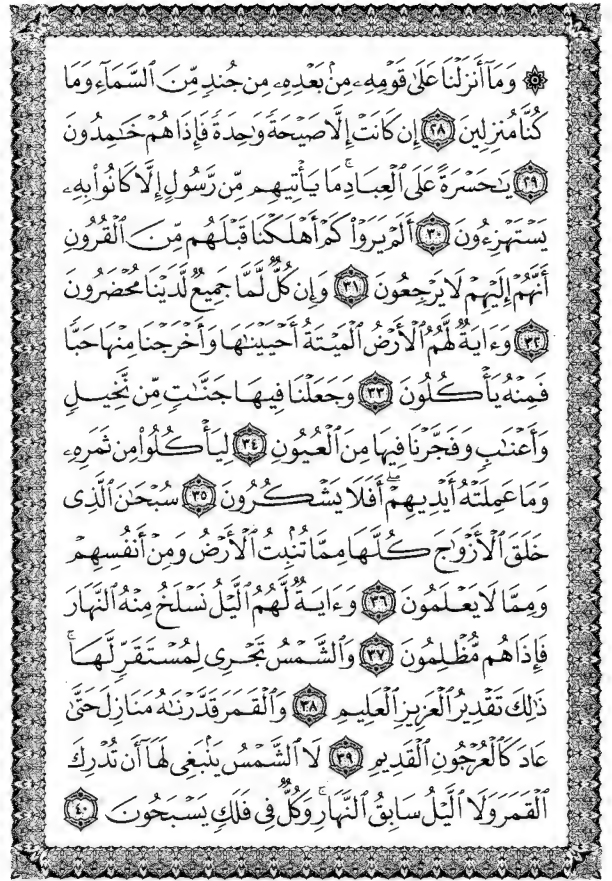 ۞ وَمَآ أَنزَلْنَا عَلَىٰ قَوْمِهِۦ مِنۢ بَعْدِهِۦ مِن جُندٍ مِّنَ ٱلسَّمَآءِ وَمَا
كُنَّا مُنزِلِينَ ٢٨ إِن كَانَتْ إِلَّا صَيْحَةً وَٰحِدَةً فَإِذَا هُمْ خَٰمِدُونَ
٢٩ يَٰحَسْرَةً عَلَى ٱلْعِبَادِۚ مَا يَأْتِيهِم مِّن رَّسُولٍ إِلَّا كَانُوا۟ بِهِۦ
يَسْتَهْزِءُونَ ٣٠ أَلَمْ يَرَوْا۟ كَمْ أَهْلَكْنَا قَبْلَهُم مِّنَ ٱلْقُرُونِ
أَنَّهُمْ إِلَيْهِمْ لَا يَرْجِعُونَ ٣١ وَإِن كُلٌّ لَّمَّا جَمِيعٌ لَّدَيْنَا مُحْضَرُونَ
٣٢ وَءَايَةٌ لَّهُمُ ٱلْأَرْضُ ٱلْمَيْتَةُ أَحْيَيْنَٰهَا وَأَخْرَجْنَا مِنْهَا حَبًّا
فَمِنْهُ يَأْكُلُونَ ٣٣ وَجَعَلْنَا فِيهَا جَنَّٰتٍ مِّن نَّخِيلٍ
وَأَعْنَٰبٍ وَفَجَّرْنَا فِيهَا مِنَ ٱلْعُيُونِ ٣٤ لِيَأْكُلُوا۟ مِن ثَمَرِهِۦ
وَمَا عَمِلَتْهُ أَيْدِيهِمْۖ أَفَلَا يَشْكُرُونَ ٣٥ سُبْحَٰنَ ٱلَّذِى
خَلَقَ ٱلْأَزْوَٰجَ كُلَّهَا مِمَّا تُنۢبِتُ ٱلْأَرْضُ وَمِنْ أَنفُسِهِمْ
وَمِمَّا لَا يَعْلَمُونَ ٣٦ وَءَايَةٌ لَّهُمُ ٱلَّيْلُ نَسْلَخُ مِنْهُ ٱلنَّهَارَ
فَإِذَا هُم مُّظْلِمُونَ ٣٧ وَٱلشَّمْسُ تَجْرِى لِمُسْتَقَرٍّ لَّهَاۚ
ذَٰلِكَ تَقْدِيرُ ٱلْعَزِيزِ ٱلْعَلِيمِ ٣٨ وَٱلْقَمَرَ قَدَّرْنَٰهُ مَنَازِلَ حَتَّىٰ
عَادَ كَٱلْعُرْجُونِ ٱلْقَدِيمِ ٣٩ لَا ٱلشَّمْسُ يَنۢبَغِى لَهَآ أَن تُدْرِكَ
ٱلْقَمَرَ وَلَا ٱلَّيْلُ سَابِقُ ٱلنَّهَارِۚ وَكُلٌّ فِى فَلَكٍ يَسْبَحُونَ ٤٠